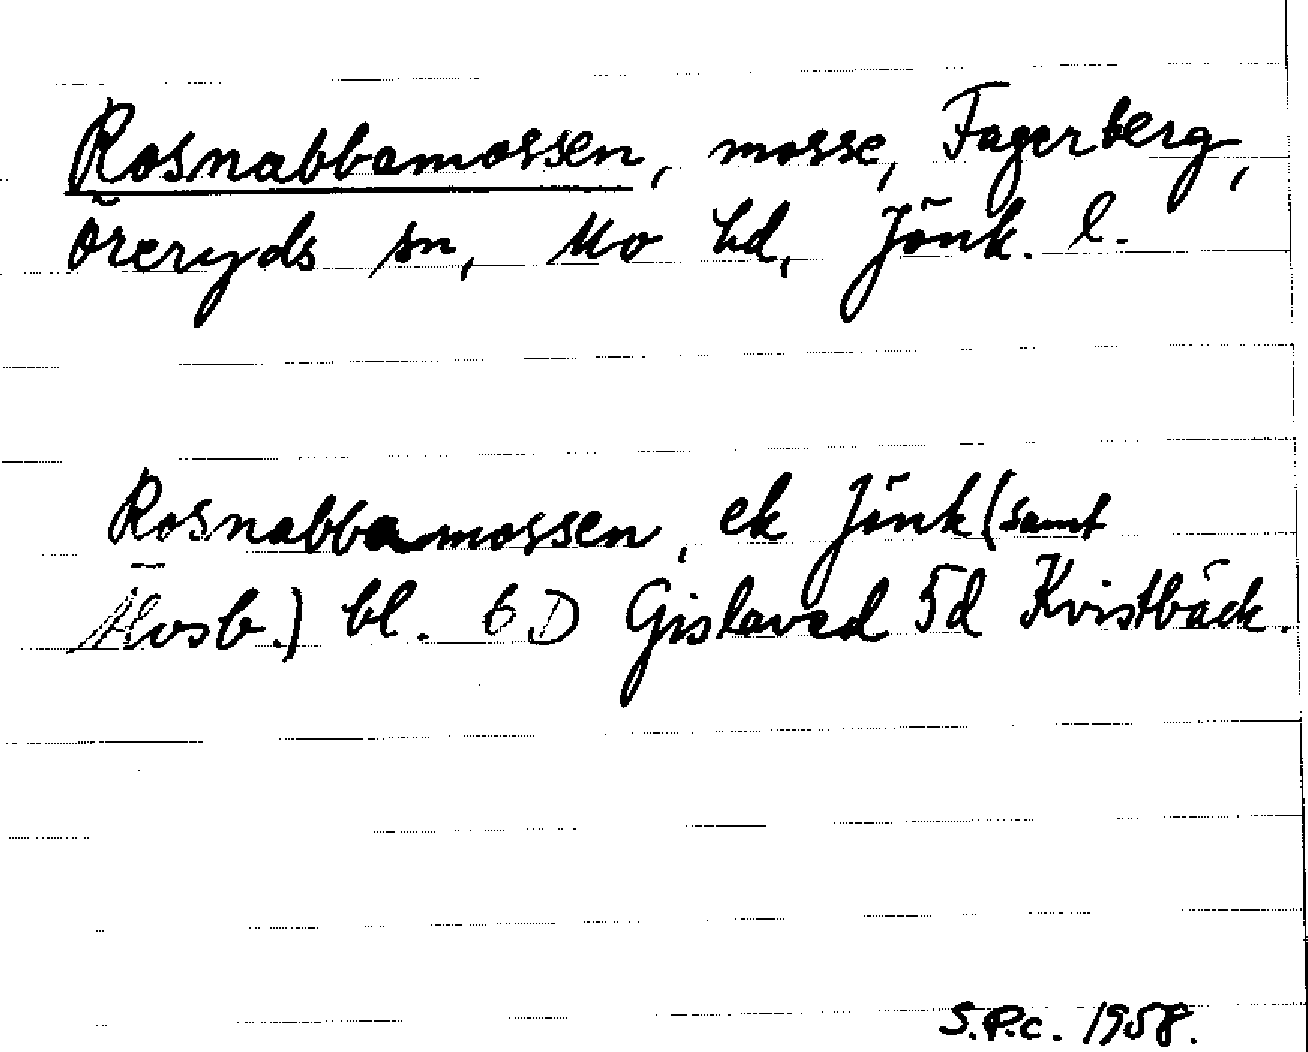 Rosnabbamossen, mosse, Fagerberg,
Öreryds sn, Mo hd, Jönk. l.
Rosnabbamossen, ek Jönk (samt
Älvsb.) bl. 6D Gislaved 5d Kvistbäck.
S.P.C. 1958.